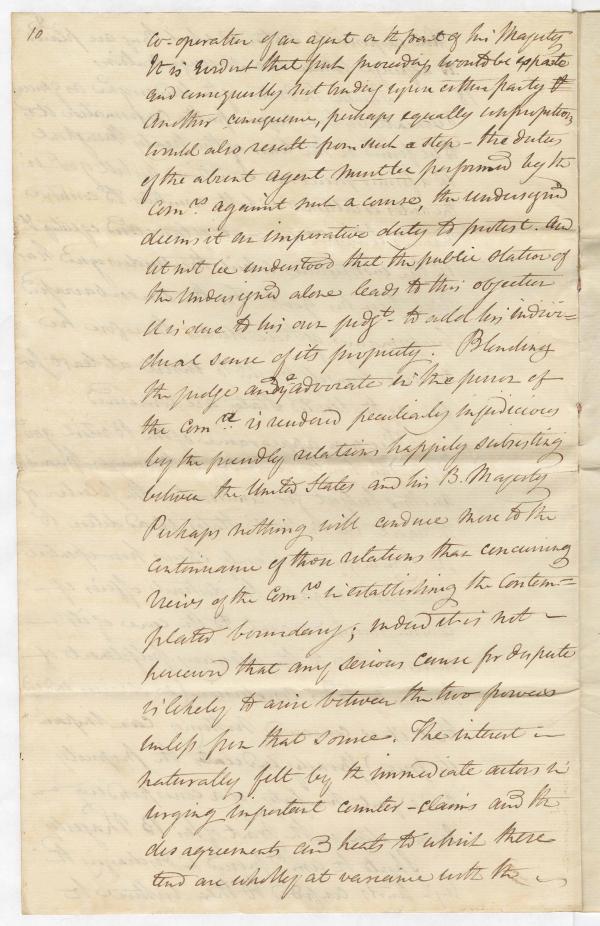 10
co-operation of an agent on the part of his Majesty
It is evident that such proceedings would be exparte
and consequently not binding upon either party
Another consequence, perhaps equally unpropitious,
would also result from such a step – the duties
of the absent agent must be performed by the
Com.rs against such a course, the undersigned
deems it an imperative duty to protest. And
let not be understood that the public station of
the Undersigned alone leads to this objection
it is due to his own judgt. to add his indivi=
dual sense of its propriety. Blending
the judge and advocate in the person of
the Com.rs is rendered peculiarly injudicious
by the friendly relations happily subsisting
between the United States and his B. Majesty
Perhaps nothing will conduce more to the
Continuance of those relations than concurring
Views of the Com.rs in establishing the Contem=
plated boundary; indeed it is not –
perceived that any serious cause for dispute
is likely to arise between the two powers
unless from that source. The interest –
naturally felt by the immediate actors in
urging important counter-claims and the
disagreements and heats to which these
tend are wholly at variance with the –